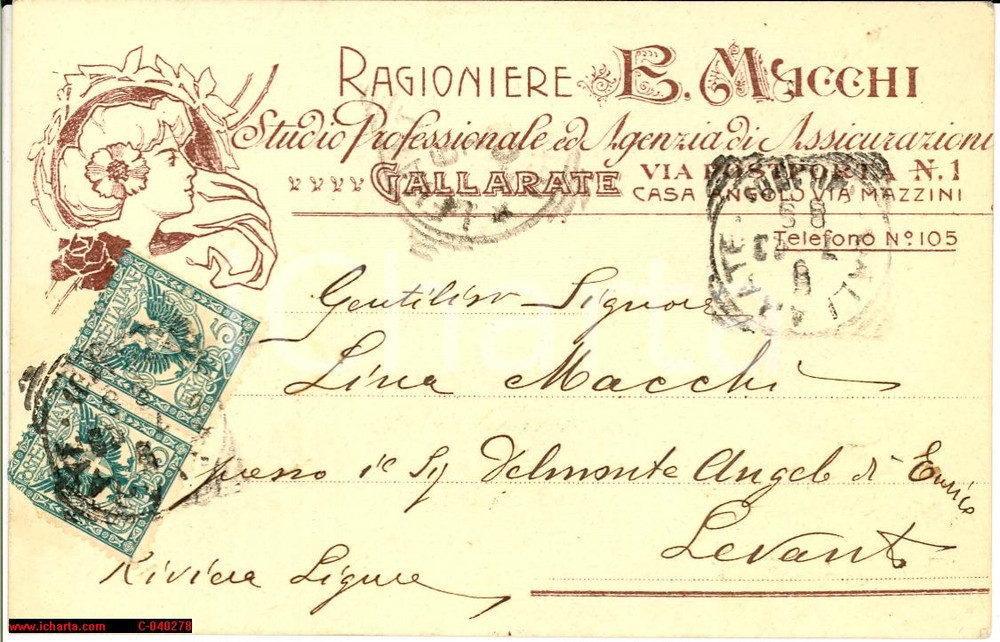 RAGIONIERE E. MACCHI
Studio Professionale ed Agenzia di Assicurazioni
GALLARATE VIA POSTPORTA N. 1
CASA ANGOLO VIA MAZZINI
Telefono No. 105
Gentilissr Signora
Lina Macchi
presso il Sig Delmonte Angelo di Enrico
Levanto
Riviera Ligure
iCharta
www.icharta.com C-040278